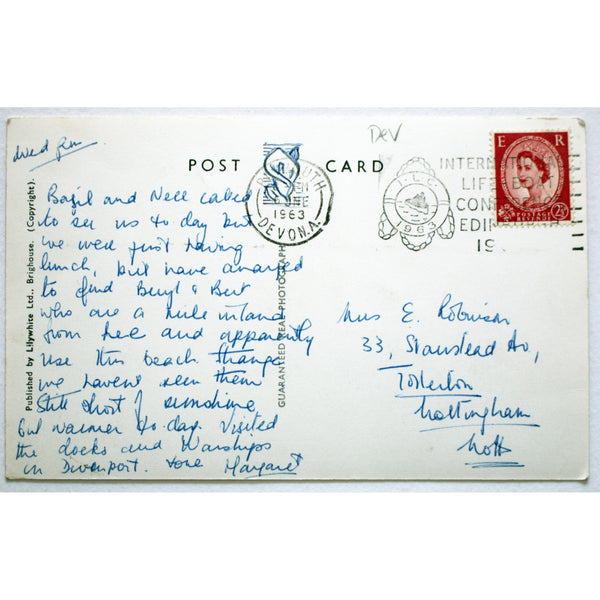 Dev
POST CARD
E R
POSTAGE
2½
1963
DEVON.A.
I L C
1963
LIFE
CON
EDIN
19
Published by Lilywhite Ltd., Brighouse. (Copyright).
GUARANTEED REAL PHOTOGRAPH
Bazil and Nell called
to see us to day but
we were just having
lunch, but have arranged
to find Beryl & Bert
who are a mile inland
from here and apparently
use this beach strange
we haven't seen them
Still short of sunshine
but warmer to-day. Visited
the docks and Warships
in Divenport. Love Margaret
Mrs E. Robinson
33, Stanstead Av,
Tollerton
Nottingham
Notts